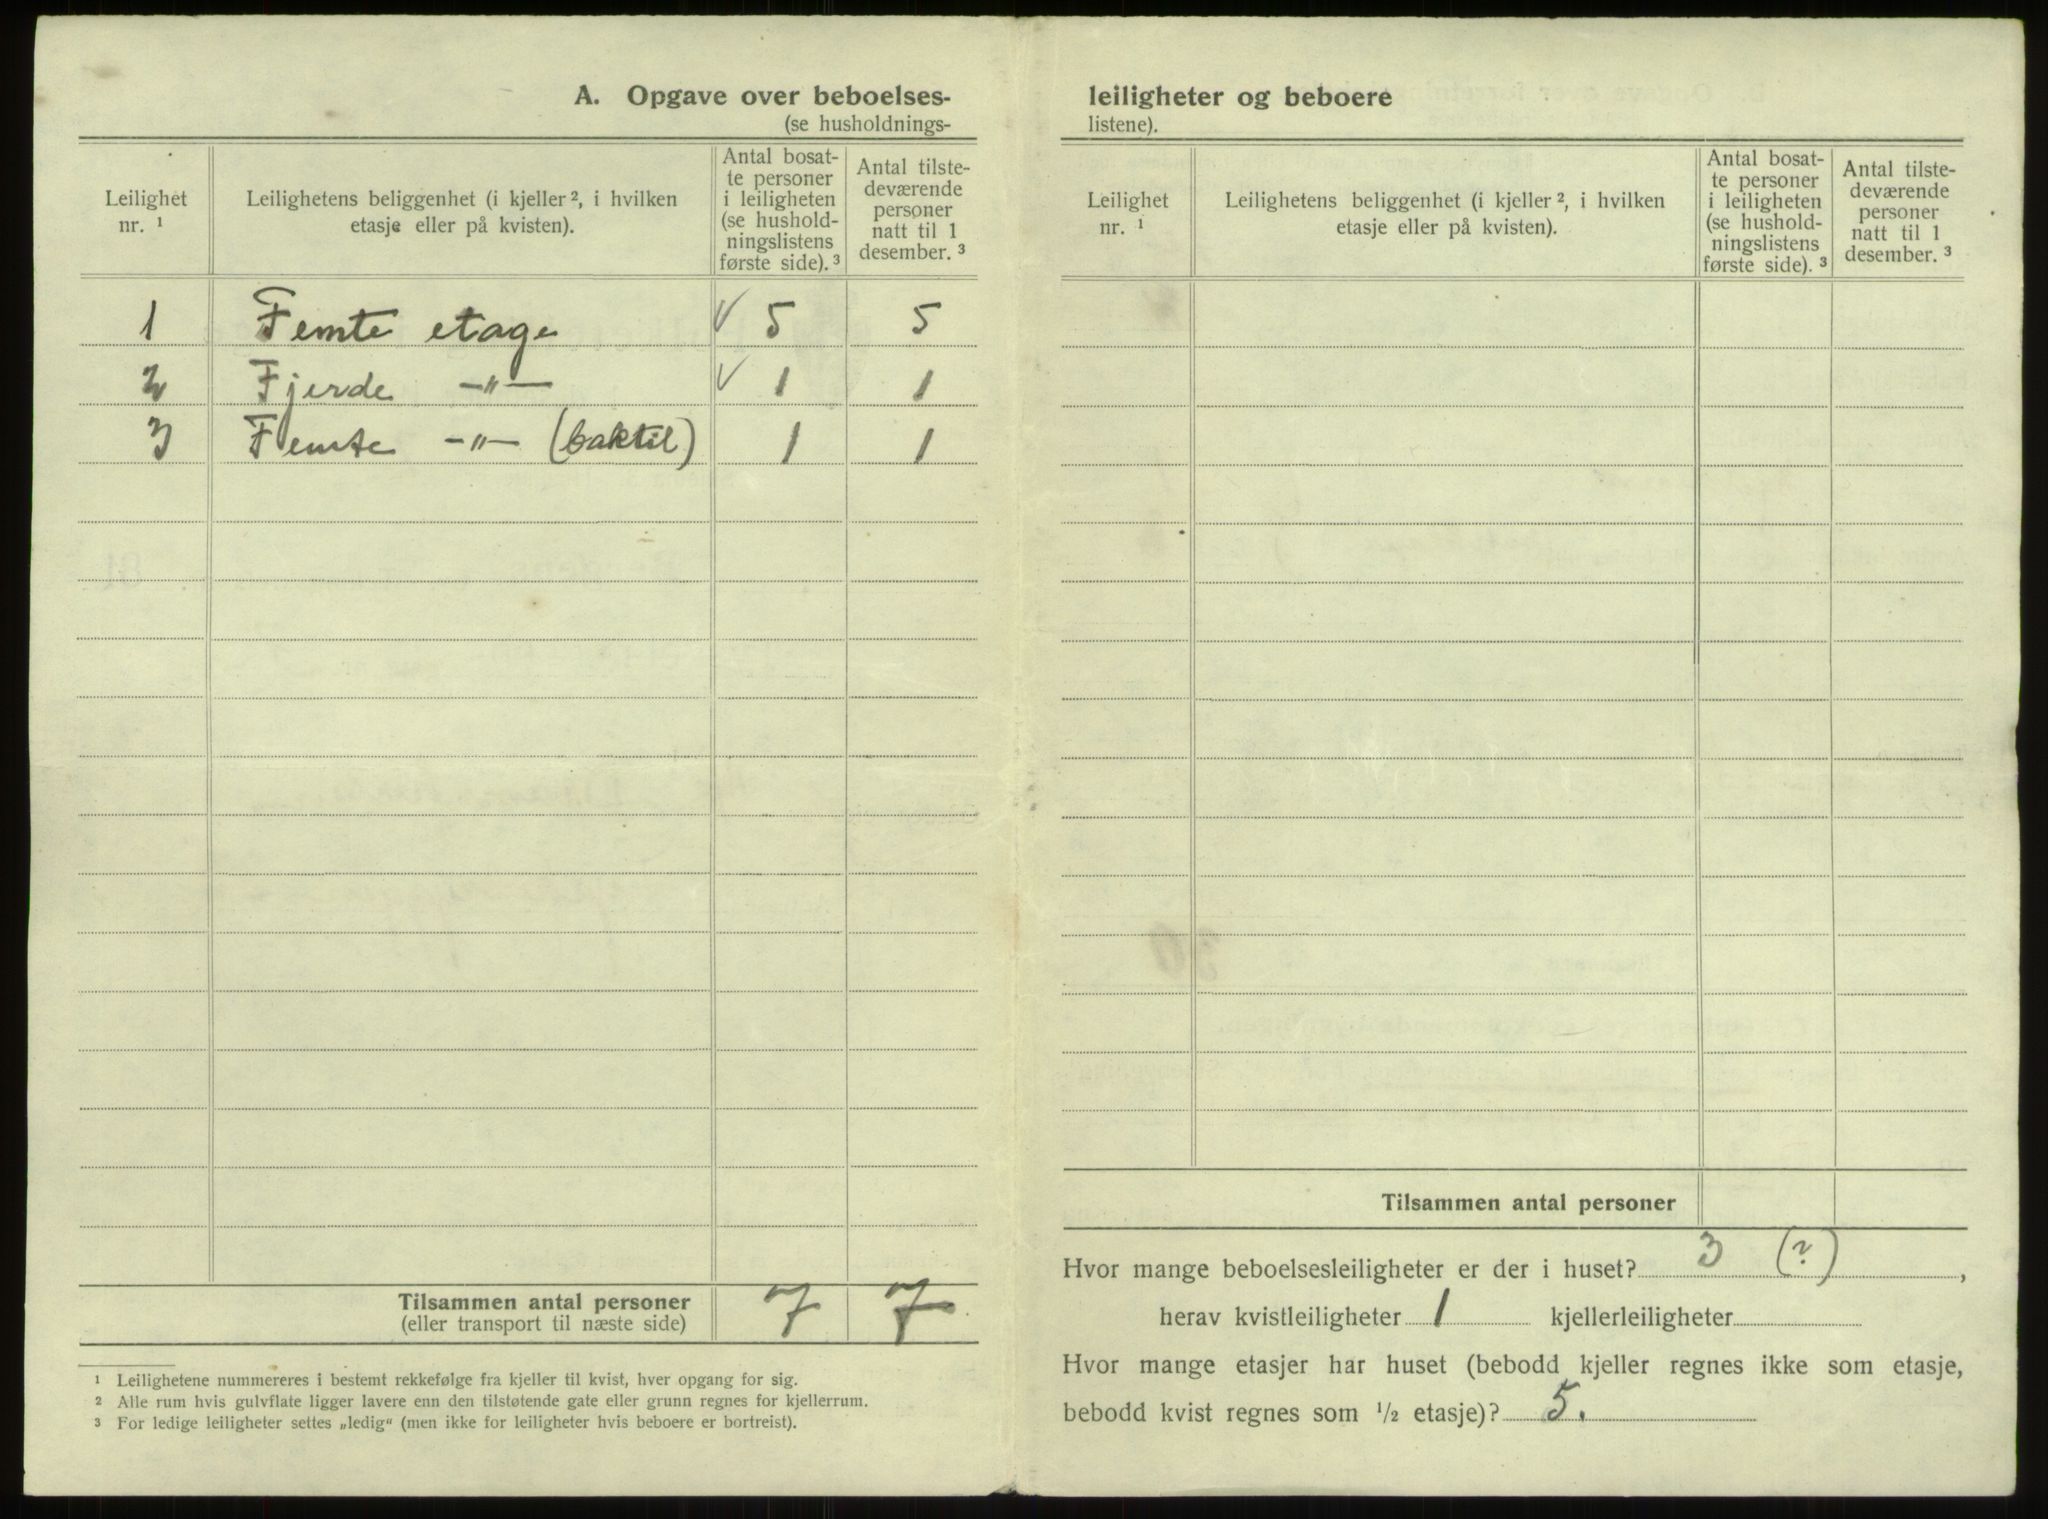 A. Opgave over beboelses-
(se husholdnings-
Leilighet
nr. ¹
Leilighetens beliggenhet (i kjeller ², i hvilken
etasje eller på kvisten).
Antal bosat-
te personer
i leiligheten
(se hushold-
ningslistens
første side). ³
Antal tilste-
deværende
personer
natt til 1
desember. ³
1 Femte etage √ 5 5
2 Fjerde -"- √ 1 1
3 Femte -"- (baktil) 1 1
Tilsammen antal personer
(eller transport til næste side)
7 7
¹ Leilighetene nummereres i bestemt rekkefølge fra kjeller til kvist, hver opgang for sig.
² Alle rum hvis gulvflate ligger lavere enn den tilstøtende gate eller grunn regnes for kjellerrum.
³ For ledige leiligheter settes „ledig“ (men ikke for leiligheter hvis beboere er bortreist).
leiligheter og beboere
listene).
Leilighet
nr. ¹
Leilighetens beliggenhet (i kjeller ², i hvilken
etasje eller på kvisten).
Antal bosat-
te personer
i leiligheten
(se hushold-
ningslistens
første side). ³
Antal tilste-
deværende
personer
natt til 1
desember. ³
Tilsammen antal personer
Hvor mange beboelsesleiligheter er der i huset? 3 (?),
herav kvistleiligheter 1 kjellerleiligheter
Hvor mange etasjer har huset (bebodd kjeller regnes ikke som etasje,
bebodd kvist regnes som ½ etasje)? 5.